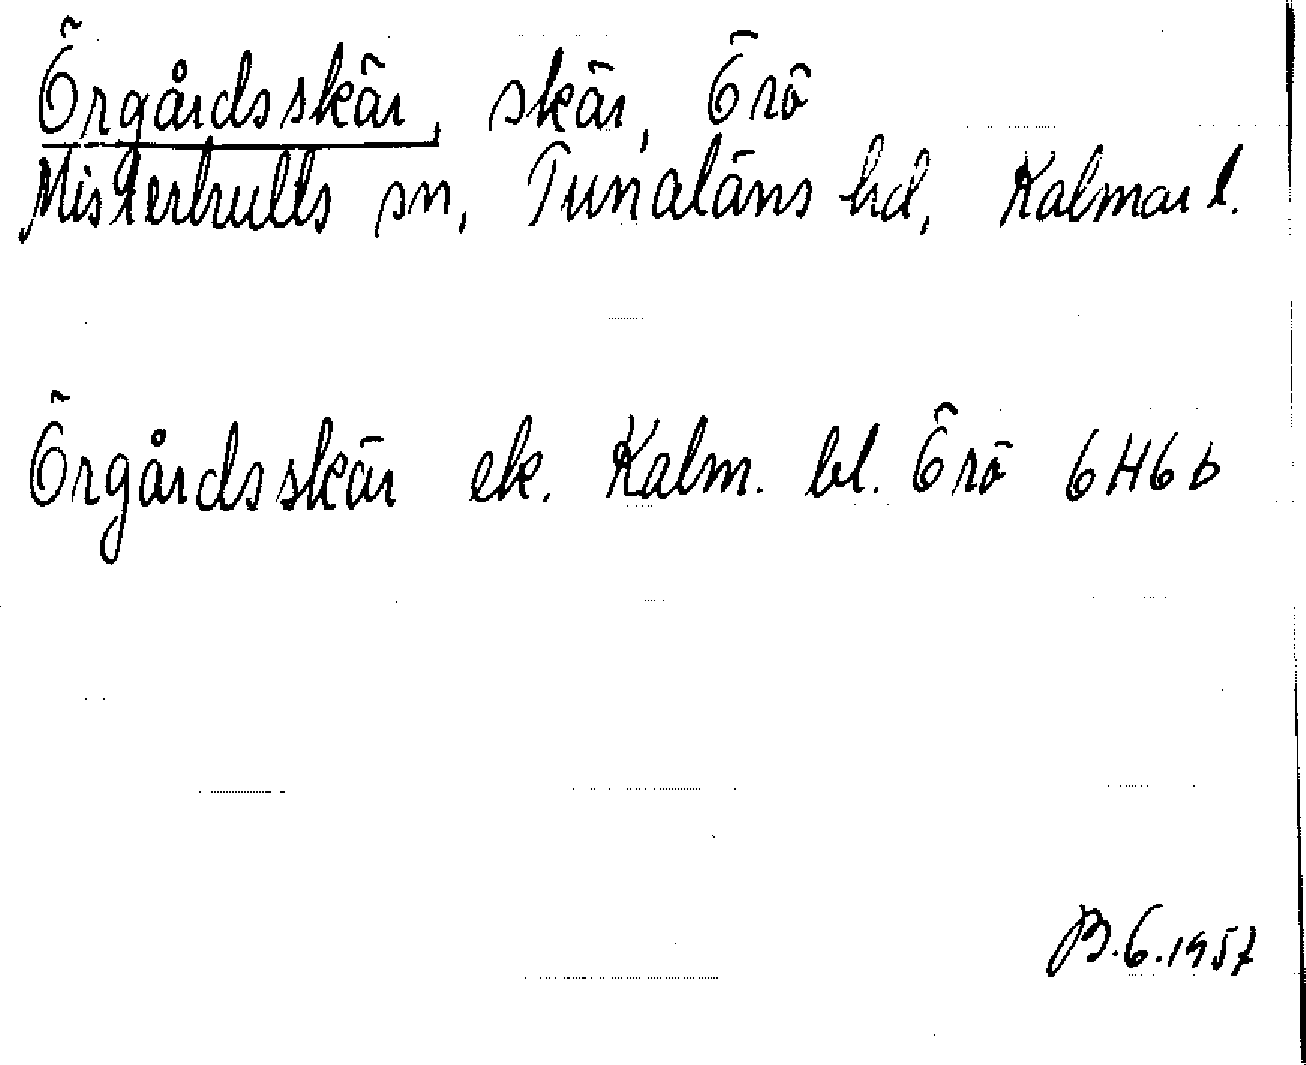 Örgårdsskär, skär, Örö
Misterhults sn, Tunaläns hd, Kalmar l.
Örgårdsskär ek. Kalm. bl. Örö 6H6b
B.G.1957